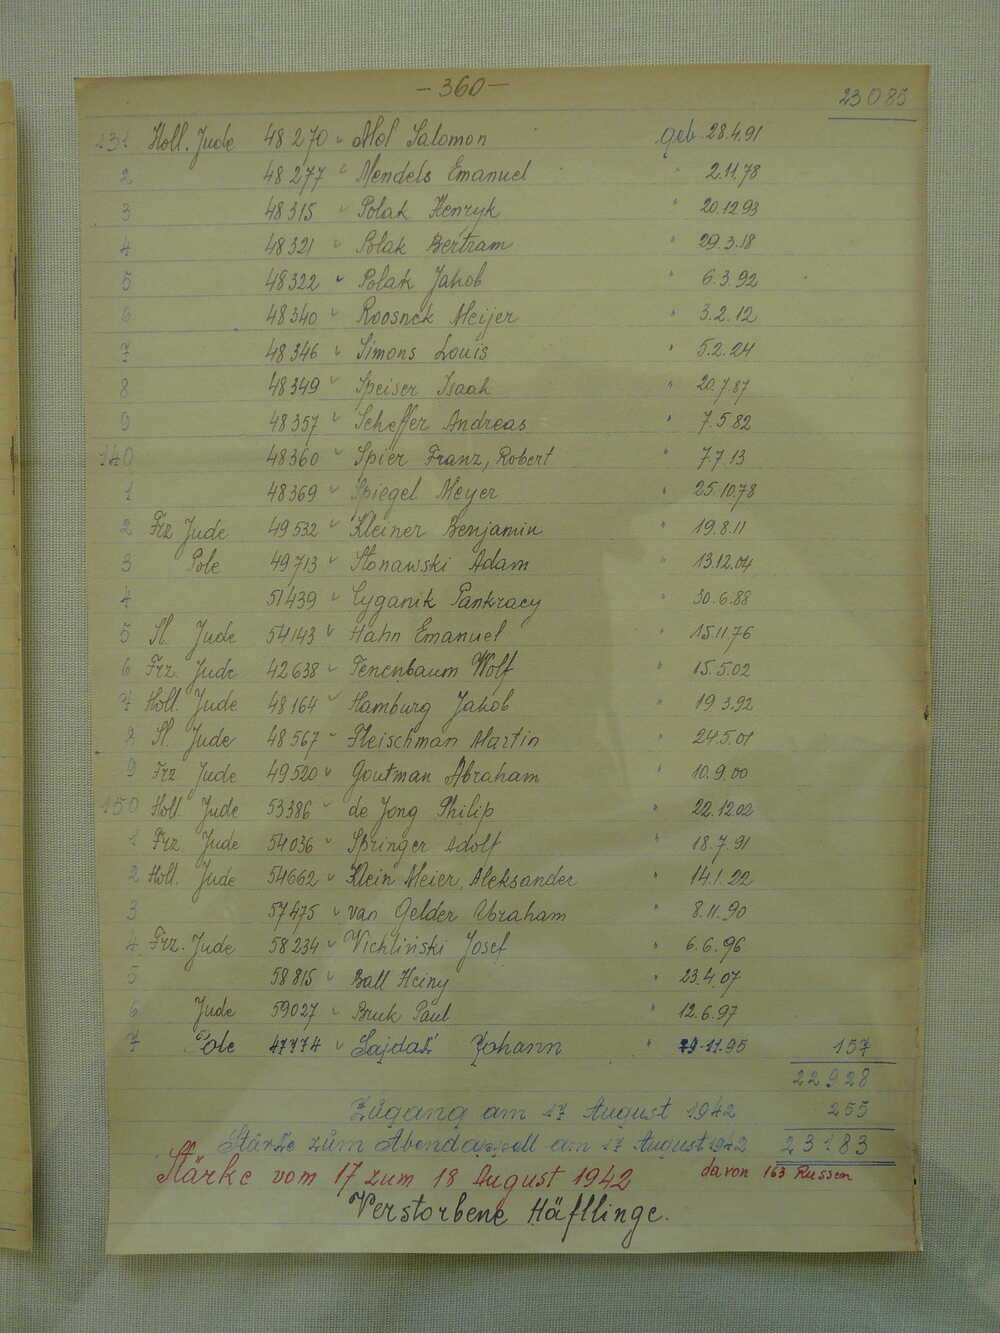 - 360 -
23085
131 Holl. Jude 48270 Mol Salomon geb 28.4.91
2 48277 Mendels Emanuel " 2.11.78
3 48315 Polak Henryk " 20.12.93
4 48321 Polak Bertram " 29.3.18
5 48322 Polak Jakob " 6.3.92
6 48340 Roosnek Meijer " 3.2.12
7 48346 Simons Louis " 5.2.24
8 48349 Speiser Isaak " 20.7.87
9 48357 Scheffer Andreas " 7.5.82
140 48360 Spier Franz, Robert " 7.7.13
1 48369 Spiegel Meyer " 25.10.78
2 Frz Jude 49532 Kleiner Benjamin " 19.8.11
3 Pole 49713 Stonawski Adam " 13.12.04
4 51439 Cyganik Pankracy " 30.6.88
5 Sl. Jude 54143 Hahn Emanuel " 15.11.76
6 Frz. Jude 42638 Tenenbaum Wolf " 15.5.02
7 Holl. Jude 48164 Hamburg Jakob " 19.3.92
8 Sl. Jude 48567 Fleischman Martin " 24.5.01
9 Frz Jude 49520 Goutman Abraham " 10.9.00
150 Holl. Jude 53386 de Jong Philip " 22.12.02
1 Frz. Jude 54036 Springer Adolf " 18.7.91
2 Holl. Jude 54662 Klein Meier, Aleksander " 14.1.22
3 57475 van Gelder Abraham " 8.11.90
4 Frz. Jude 58234 Vichliński Josef " 6.6.96
5 58815 Ball Heiny " 23.4.07
6 Jude 59027 Bruk Paul " 12.6.97
7 Pole 47774 Sajdak Johann " 29.11.95 157
22928
Zugang am 17 August 1942 255
Stärke zum Abendappell am 17 August 1942 23183
Stärke vom 17 zum 18 August 1942 davon 163 Russen
Verstorbene Häftlinge.